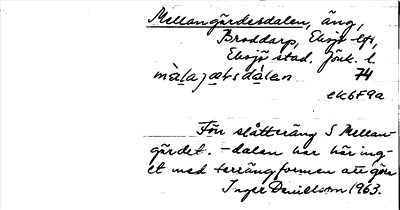 Mellangärdesdalen, äng,
Broddarp, Eksjö lfs,
Eksjö stad. Jönk. l.
màlajætsdàlen 74
ek6F9a
Förr slåtteräng S Mellan-
gärdet. -dalen har här ing-
et med terrängformen att göra
Inger Danielsson 1963.